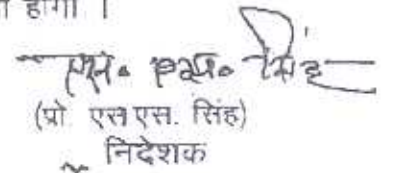 होगा ।
एस॰ एस॰ सिंह
(प्रो एस एस. सिंह)
निदेशक